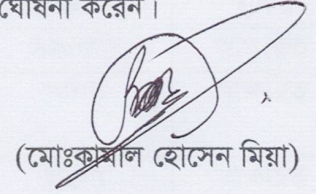 ঘোষনা করেন।
(মোঃকামাল হোসেন মিয়া)